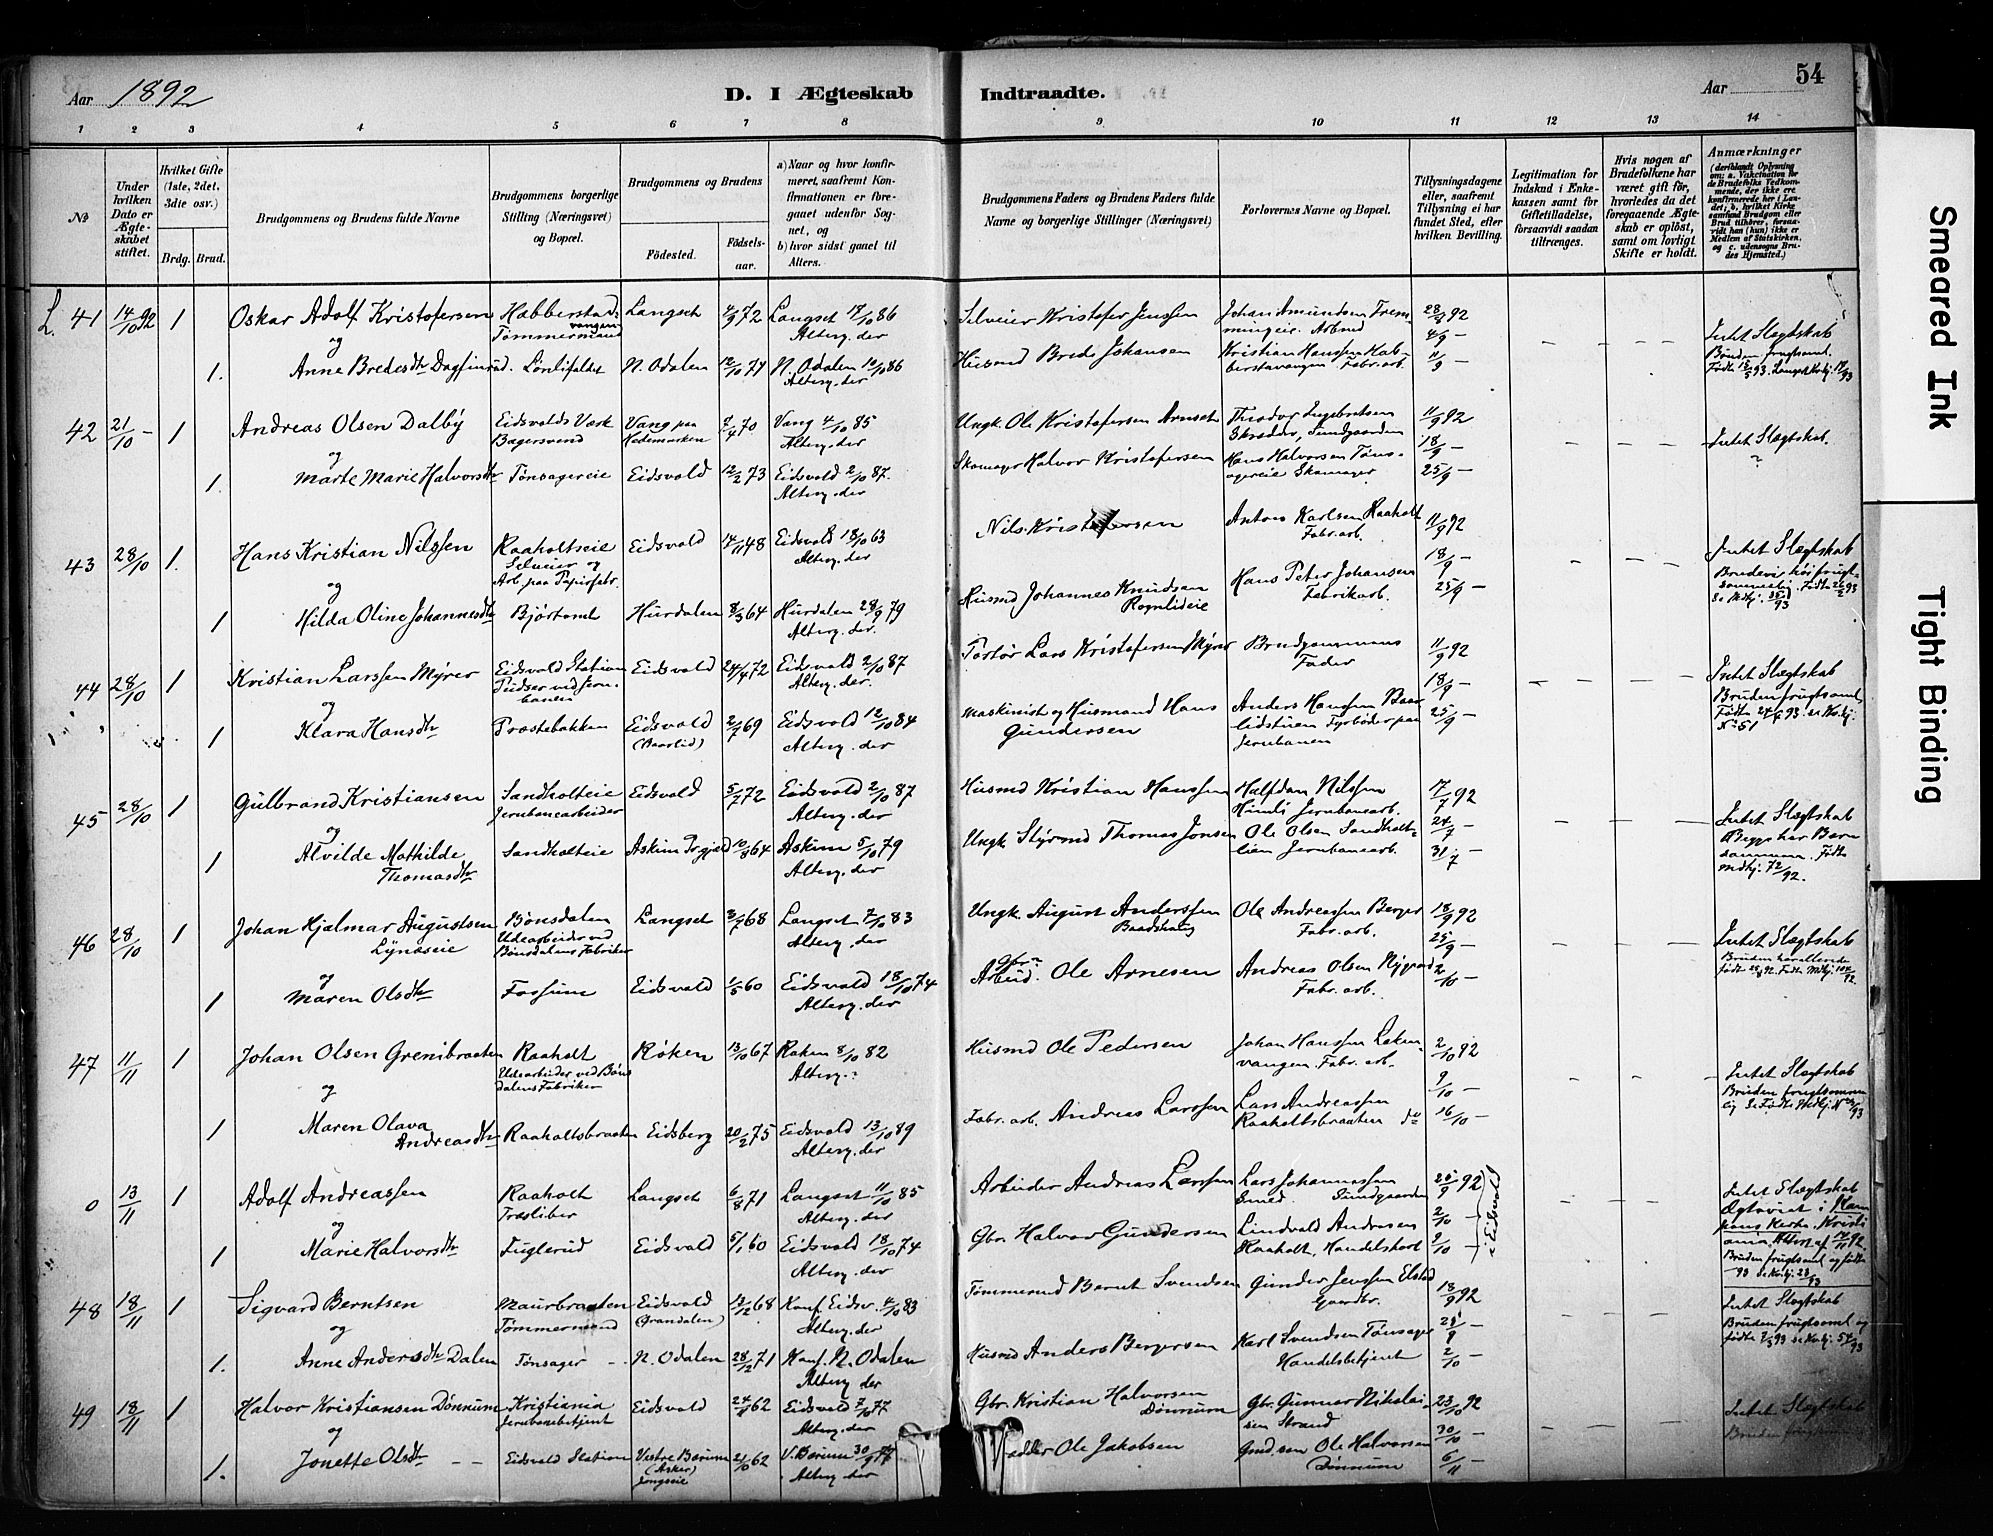 Aar 1892
D. I Ægteskab
Indtraadte.
Aar
54
1 2 3 4 5 6 7 8 9 10 11 12 13 14
No
Under hvilken Dato er Ægteskabet stiftet.
Hvilket Gifte (1ste, 2det, 3die osv.)
Brdg. Brud.
Brudgommens og Brudens fulde Navne
Brudgommens borgerlige Stilling (Næringsvei) og Bopæl.
Brudgommens og Brudens
Fødested.
Fødselsaar.
a) Naar og hvor konfirmeret, saafremt Konfirmationen er foregaaet udenfor Sognet, og
b) hvor sidst gaaet til Alters.
Brudgommens Faders og Brudens Faders fulde Navne og borgerlige Stillinger (Næringsvei)
Forlovernes Navne og Bopæl.
Tillysningsdagene eller, saafremt Tillysning ei har fundet Sted, efter hvilken Bevilling.
Legitimation for Indskud i Enkekassen samt for Giftetilladelse, forsaavidt saadan tiltrænges.
Hvis nogen af Brudefolkene har været gift før, hvorledes da det foregaaende Ægteskab er opløst, samt om lovligt Skifte er holdt.
Anmærkninger
L. 41 14/10 92 1 Oskar Adolf Kristofersen Habberstadvangen Tømmermand Langset 4/9 72 Langset 17/10 86 Alterg. der Selveier Kristofer Jenssen Johan Amundsen 28/8 92 4/9 Intet Slægtskab
og
1. Anne Bredesdtr Dagfinrud. N. Odalen 12/10 71 N. Odalen 10/10 86 Alterg. der Husmd Brede Johansen Kristian Hanssen Habberstavangen Fabr. arb. 11/9 – Bruden frugtsoml.
42 21/10 – 1 Andreas Olsen Dalby Eidsvolds Værk Bagersvend Vang paa Hedemarken 7/4 70 Vang 4/10 85 Alterg. der Ungk. Ole Kristofersen Arnset Theodor Ingebretsen Skrædder, Sundgaarden 11/9 92 18/9 – Intet Slægtskab.
og
1. Marte Marie Halvorsdtr Tønsagereie Eidsvold 12/2 73 Eidsvold 2/10 87. Alterg. der Skomager Halvor Kristofersen Hans Halvorsen Tønsagereie Skomager 25/9 –
43 28/10 1. Hans Kristian Nilssen Raaholtseie Selveier og Arb. paa Papirfabr. Eidsvold 14/11 48 Eidsvold 18/10 63 Alterg. der Nils Kristofersen Anton Karlsen Raaholt Fabr. arb. 11/9 92 18/9 – Intet Slægtskab
og
1 Hilda Oline Johannesdtr Bjørtomt Hurdalen 8/3 64 Hurdalen 28/9 79 Alterg. der. Husmd Johannes Knudsen Rognlideie Hans Peter Johansen Fabrikarb. 25/9 –
44 28/10 1 Kristian Larssen Myrer Eidsvold Station Pudser ved Jernbanen Eidsvold 24/4 72 Eidsvold 2/10 87 Alterg. der. Lars Kristofersen Myrer Brudgommens Fader 11/9 92 18/9 – Intet Slægtskab
og
1 Klara Hansdtr Præstebakken Eidsvold (Baarlid) 2/7 69 Eidsvold 12/10 84 Alterg. der Maskinist og Husmand Hans Gundersen Anders Hanssen Baarlidstuen Fyrbøder paa Jernbanen 25/9 – Bruden frugtsoml.
45 28/10 1 Gulbrand Kristiansen Sandholteie Jernbanearbeider Eidsvold 5/7 72 Eidsvold 2/10 87 Alterg. der Husmd Kristian Hanssen Halfdan Nilssen Jernbanearb. 17/7 92 24/7 – Intet Slægtskab
og
1 Alvilde Mathilde Thomasdtr Sandholteie Askim Prgjæld 10/8 64 Askim 5/10 79 Alterg. der Ungk. Styrmd Thomas Jonsen Ole Olsen Sandholtlien Jernbanearb. 31/7 Begge har Barn sammen. Født
46 28/10 1 Johan Hjalmar Augustsen Lynæseie Bønsdalen Udearbeider ved Bønsdalens Fabriker Langset 3/7 68 Langset 7/10 83 Alterg. der Ungk. August Anderssen Ole Andreassen Berger Fabr. arb. 18/9 92 25/9 – Intet Slægtskab
og
1 Maren Olsdtr Fossum Eidsvold 1/5 60 Eidsvold 18/10 74 Alterg. der Ole Arnesen Andreas Olsen Nygaard Fabr. arb. 2/10 –
47 11/11 1 Johan Olsen Grenibraaten Raaholt Udearbeider ved Bønsdalens Fabriker Røken 13/10 67 Røken 8/10 82 Alterg. Husmd Ole Pedersen Johan Hanssen Fabr. arb. 2/10 92 9/10 – Intet Slægtskab
og
1 Maren Olava Andreasdtr Raaholtsbraaten Eidsberg 20/2 75 Eidsvold 13/10 89 Alterg. der Fabr. arb. Andreas Larssen Lars Andreassen Raaholtsbraaten do 16/10 –
0 13/11 1 Adolf Andreassen Raaholt Træsliber Langset 6/8 71 Langset 11/10 85 Alterg. der Arbeider Andreas Larssen Lars Johannessen Smed. Sundgaarden 25/9 92 2/10 – i Eidsvold Intet Slægtskab
og
1 Marie Halvorsdtr Fuglerud Eidsvold 5/1 60 Eidsvold 18/10 74 Alterg. der Gbr. Halvor Gundersen Lindvald Andresen Raaholt, 9/10 –
48 18/11 1 Sigvard Berntsen Maurbraaten Tømmermand Eidsvold (Grandalen) 12/12 68 Konf. Eidsv. 4/10 83 Alterg. der Tømmermd Bernt Svendsen Gunder Jenssen Elstad Gaardbr. 18/9 92 Intet Slægtskab
og
1. Anne Andersdtr Dalen Tønsager N. Odalen 28/12 71 Konf. N. Odalen Alterg. der Husmd Anders Bergersen Karl Svendsen Tønsager Handelsbetjent 2/10 – Bruden frugtsoml og
49 18/11 1 Halvor Kristiansen Dønnum Kristiania Jernbanebetjent Eidsvold 62 Eidsvold 7/10 77 Alterg. der Gbr. Kristian Halvorsen Dønnum Gbr. Gunner Nikolaisen Strand 23/10 92 30/10 – Intet Slægtskab
og
1. Jonette Olsdtr Eidsvold Station Vestre Bærum (Asker) 21/10 62 V. Bærum 30/9 Alterg. der Ole Jakobsen Gmd. søn Ole Halvorsen Dønnum 6/11 –
Smeared Ink
Tight Binding